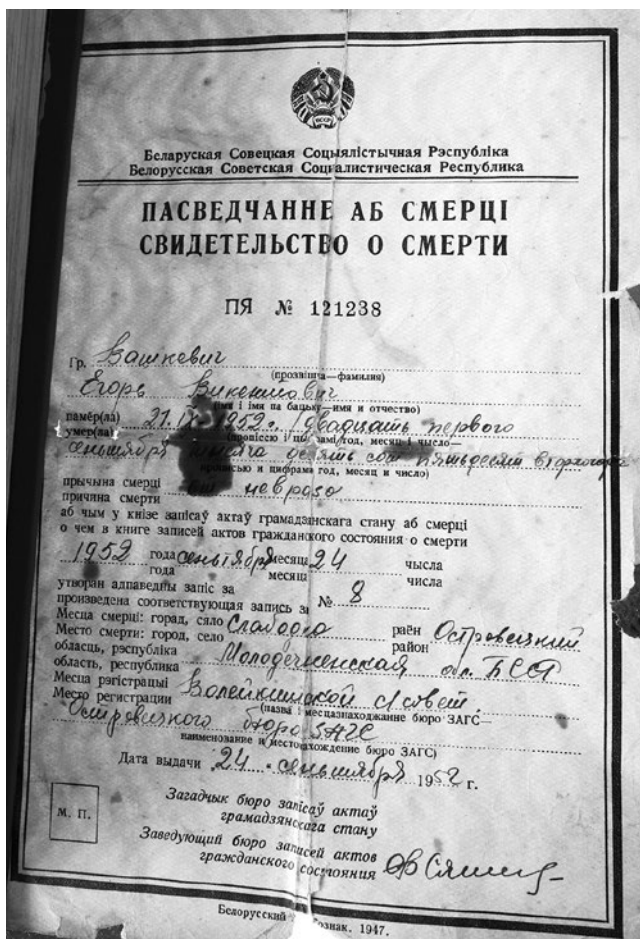 БССР
Беларуская Совецкая Соцыялістычная Рэспубліка
Белорусская Советская Социалистическая Республика
ПАСВЕДЧАННЕ АБ СМЕРЦІ
СВИДЕТЕЛЬСТВО О СМЕРТИ
ПЯ № 121238
Гр. Вашкевич
(прозвішча—фамилия)
Егорь Викентиович
(імя і імя па бацьку—имя и отчество)
памёр(ла) 21.IX-1952 г. /двадцать первого
умер(ла) (пропіссю і цыфрамі год, месяц і чысло—
сеньтября девять сот пятьдесят второго года
прописью и цифрами год, месяц и число)
прычына смерці
причина смерти от невроза
аб чым у кнізе запісаў актаў грамадзянскага стану аб смерці
о чем в книге записей актов гражданского состояния о смерти
1952 года сеньтября месяца 24 чысла
года месяца числа
утворан адпаведны запіс за
произведена соответствующая запись за № 8
Месца смерці: горад, сяло Слабодка раён Островецкий
Место смерти: город, село район
обласць, рэспубліка Молодечненская обл. БССР
область, республика
Месца рэгістрацыі
Место регистрации сельсовет
(назва і месцазнаходжанне бюро ЗАГС—
Островецкого бюро ЗАГС
наименование и местонахождение бюро ЗАГС)
Дата выдачи 24. сеньтября 1952 г.
Загадчык бюро запісаў актаў
грамадзянскага стану
М. П.
Заведующий бюро записей актов
гражданского состояния
Белорусский 1947.